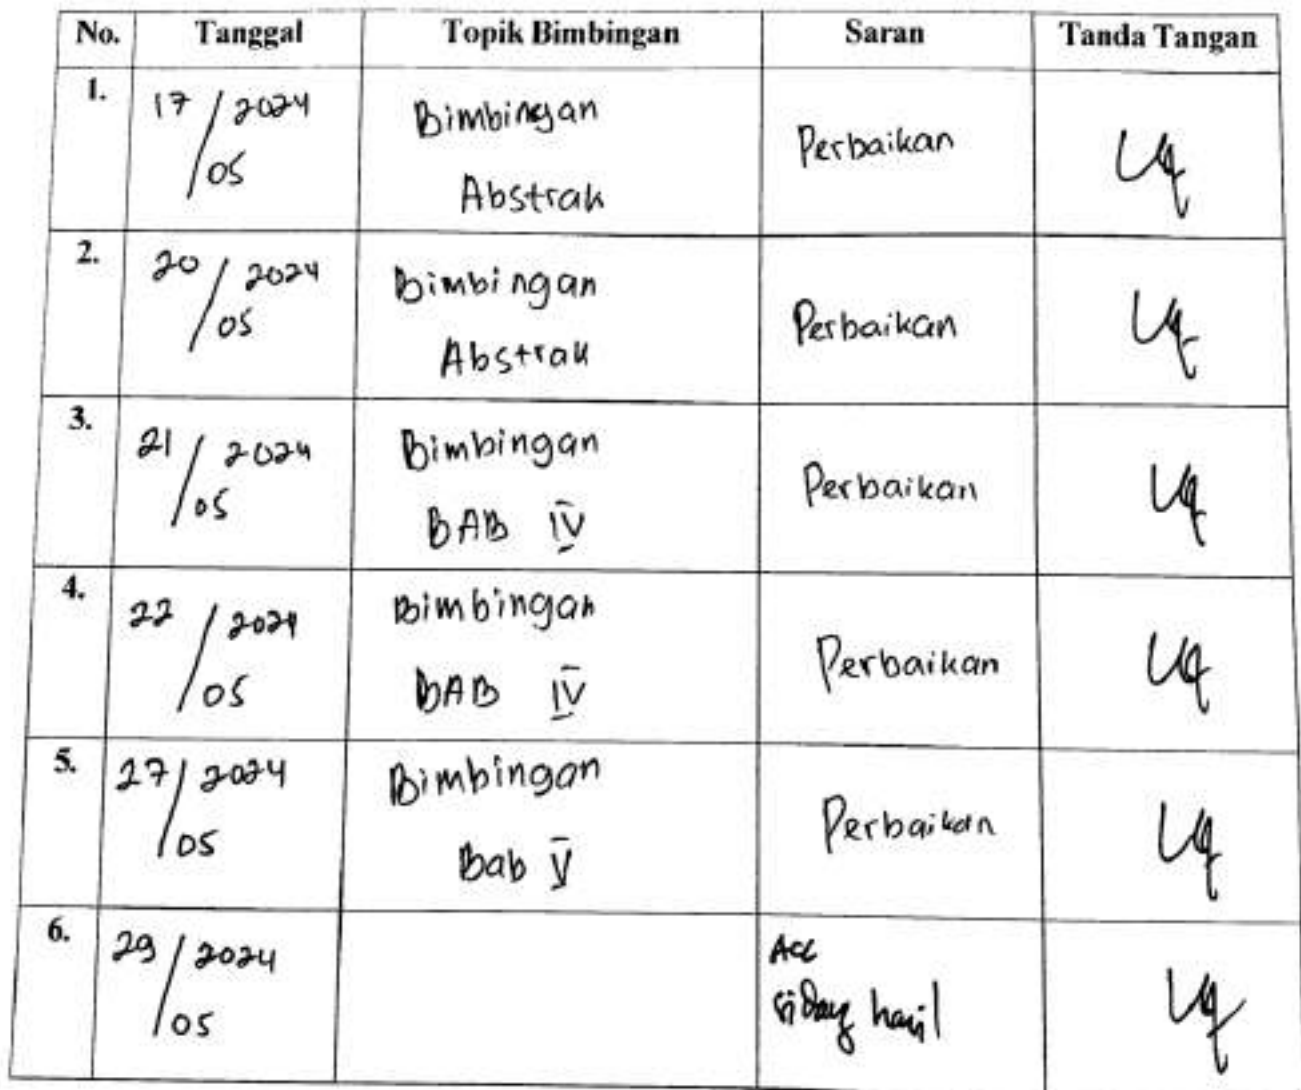 No. Tanggal Topik Bimbingan Saran Tanda Tangan
1. 17/05 2024 Bimbingan Abstrak Perbaikan
2. 20/05 2024 Bimbingan Abstrak Perbaikan
3. 21/05 2024 Bimbingan BAB IV Perbaikan
4. 22/05 2024 Bimbingan BAB IV Perbaikan
5. 27/05 2024 Bimbingan Bab V Perbaikan
6. 29/05 2024 Acc sidang hasil